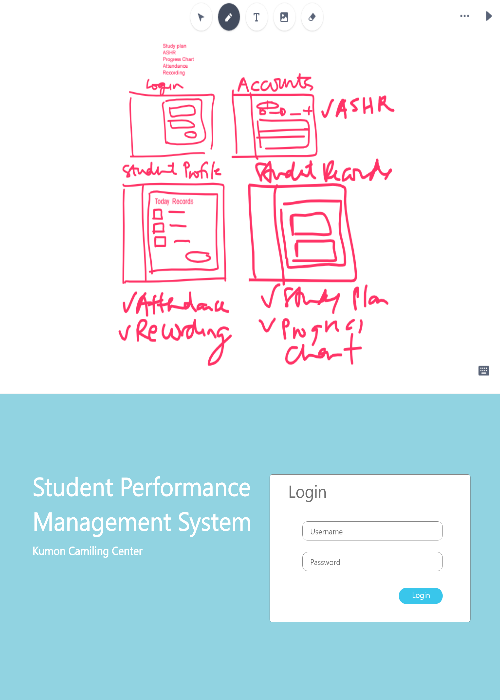 T
Study plan
ASHR
Progress Chart
Attendance
Recording
Login
Accounts
✓ASHR
Student Profile
Student Records
Today Records
✓Attendance
✓Recording
✓Study Plan
✓Progress
Chart
Student Performance
Management System
Kumon Camiling Center
Login
Username
Password
Login